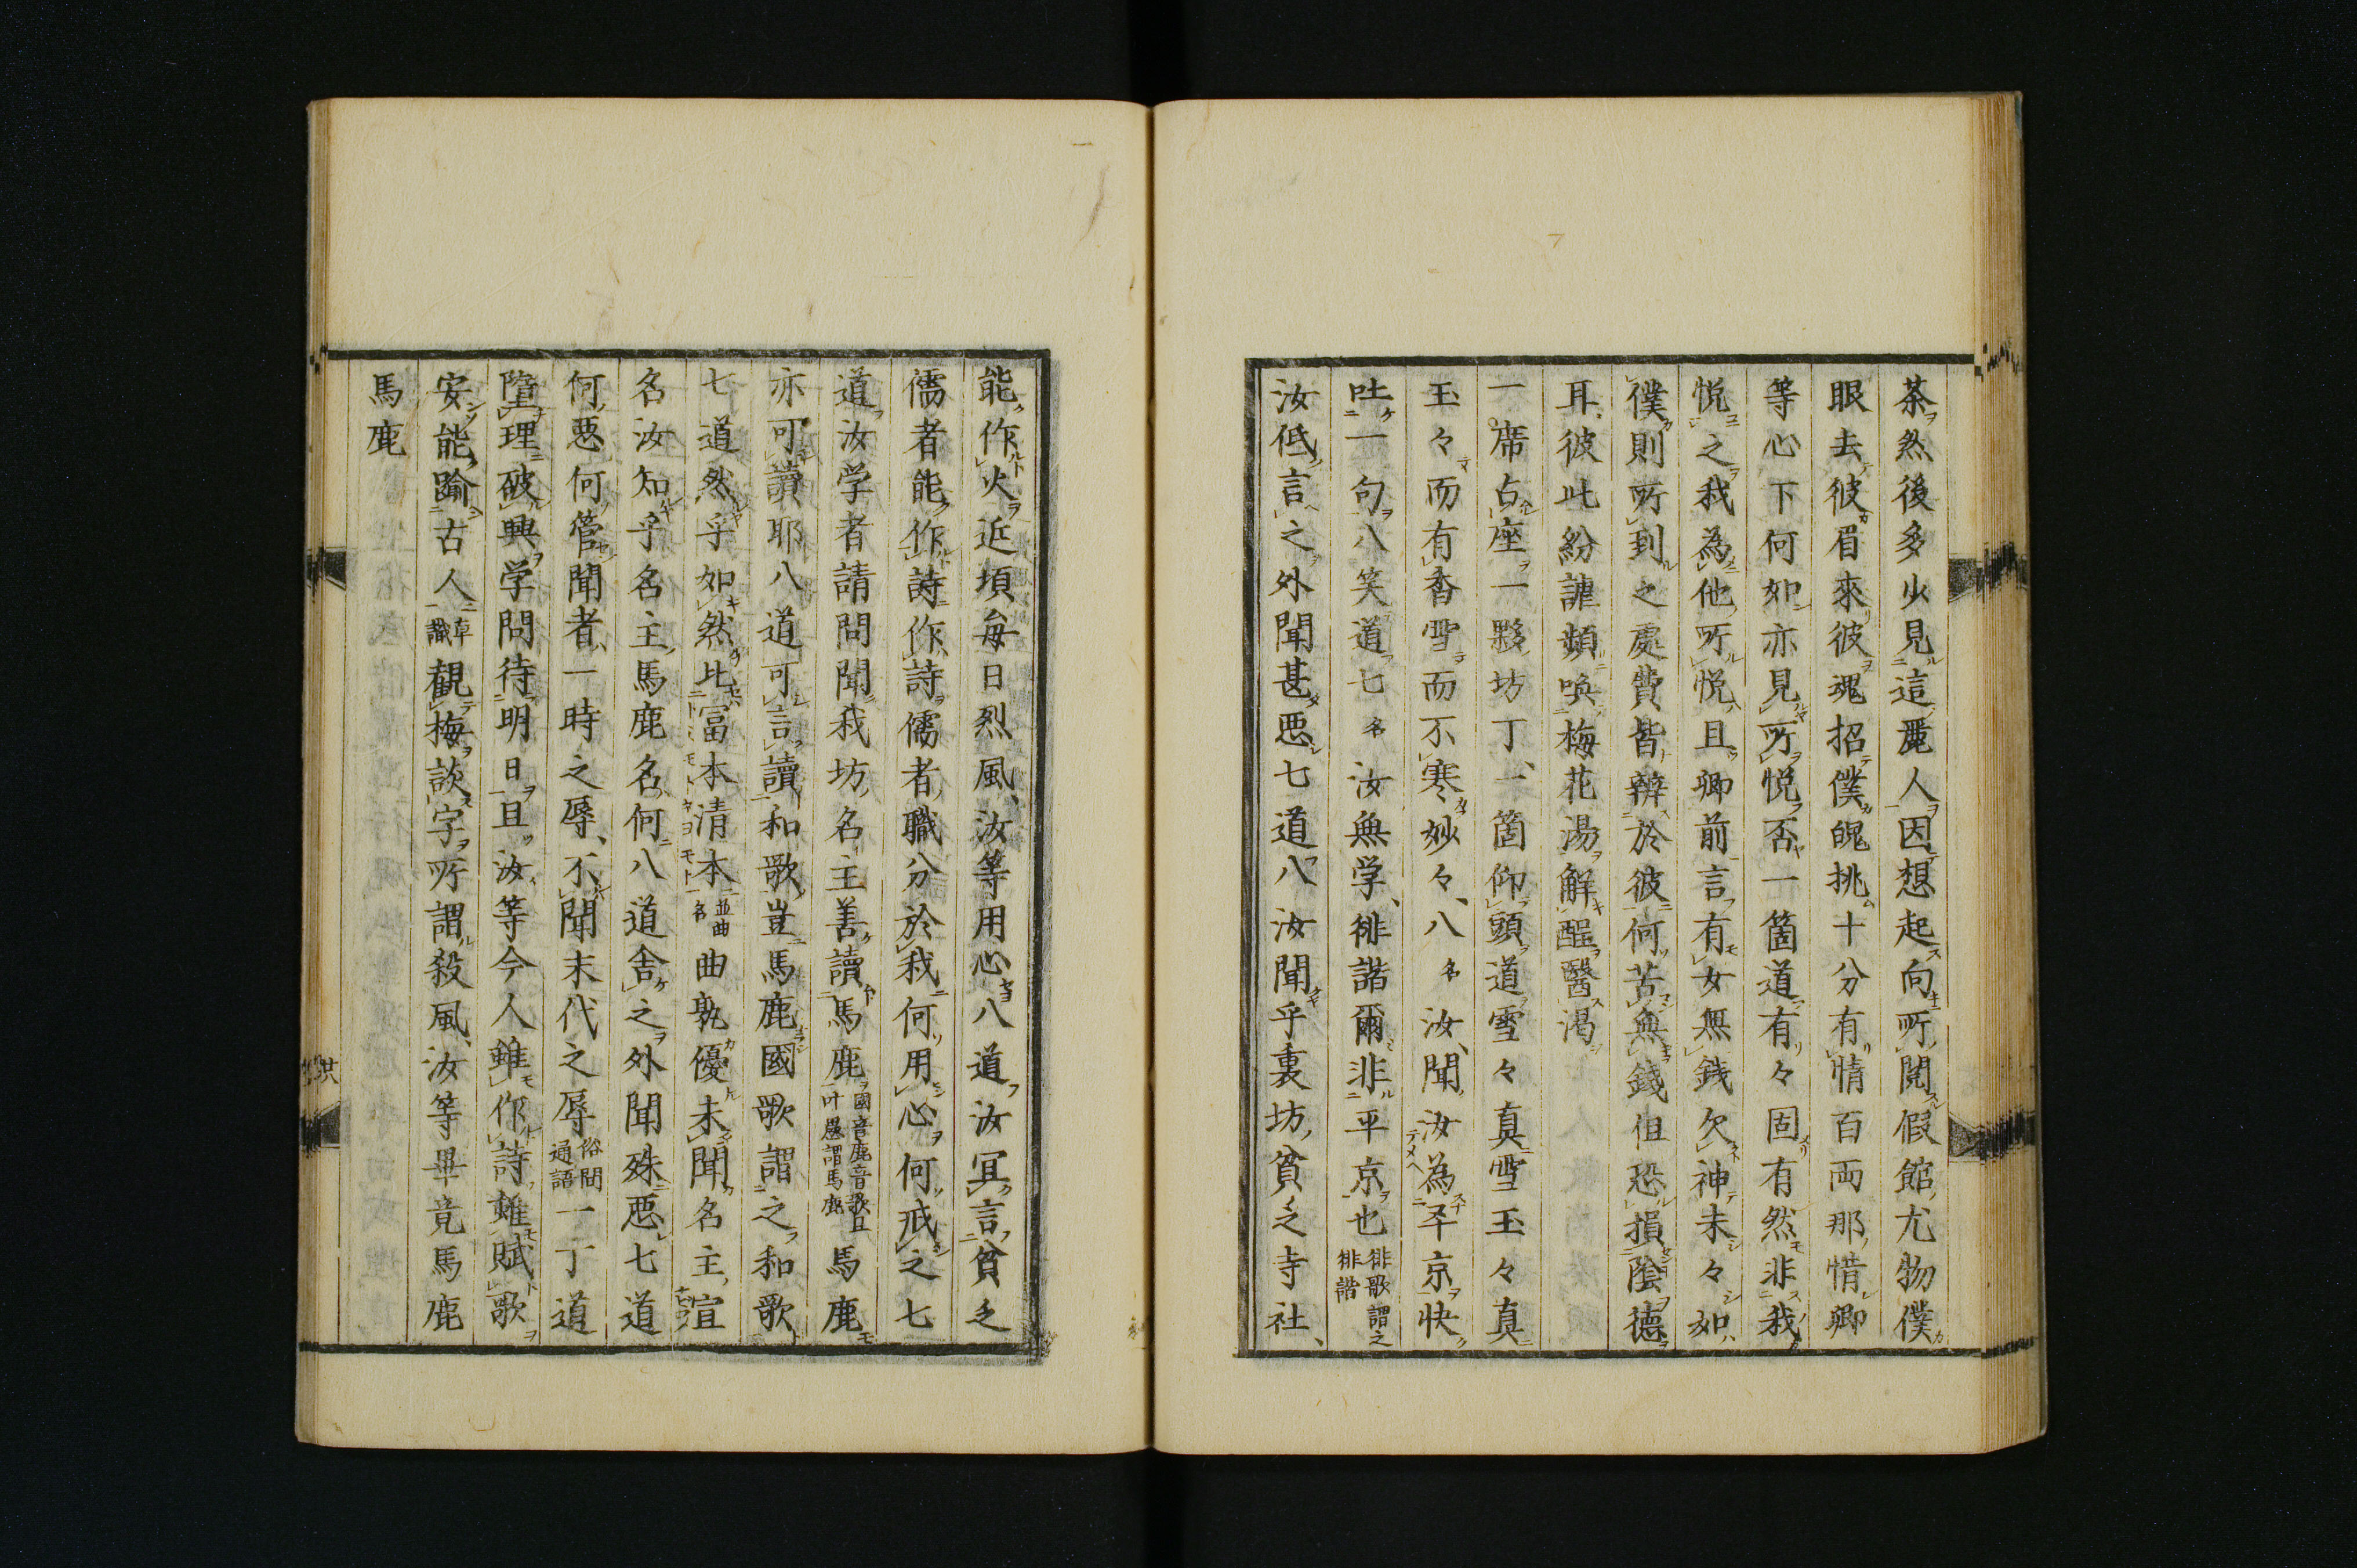 茶然後多少見這麗人因想起向所閱假館尤物僕
眼去彼眉來彼魂招僕魄挑十分有情百両那惜卿
等心下何如亦見所悦否一箇道有々固有然非我
悦之我為他所悦且卿前言有女無銭欠神未々如
僕則所到之處費皆辨於彼何苦無錢但恐損陰德
耳彼此紛謔頻喚梅花湯解酲醫渇
一席占座一夥坊丁一箇仰頭道雪々真雪玉々真
玉々而有香雪而不寒妙々八名汝聞汝為平京快
吐一句八笑道七名汝無学徘諧爾非平京也徘歌謂之徘諧
汝低言之外聞甚悪七道八汝聞乎裏坊貧乏寺社
能作火近頃毎日烈風汝等用心八道汝冥言貧乏
儒者能作詩作詩儒者職分於我何用心何戒之七
道汝学者請問聞我坊名主善讀馬鹿國音鹿音歌且叶愚謂馬鹿馬鹿
亦可讀耶八道可言讀和歌豈馬鹿國歌謂之和歌
七道然乎如然比富本清本並曲名曲孰優未聞名主渲
名汝知乎名主馬鹿名何八道舎之外聞殊悪七道
何悪何管聞者一時之辱不聞末代之辱俗間通語一丁道
墮理破興学問待明日且汝等今人雖作詩雖賦歌
安能踰古人卓識觀梅談字所謂殺風汝等畢竟馬鹿
馬鹿